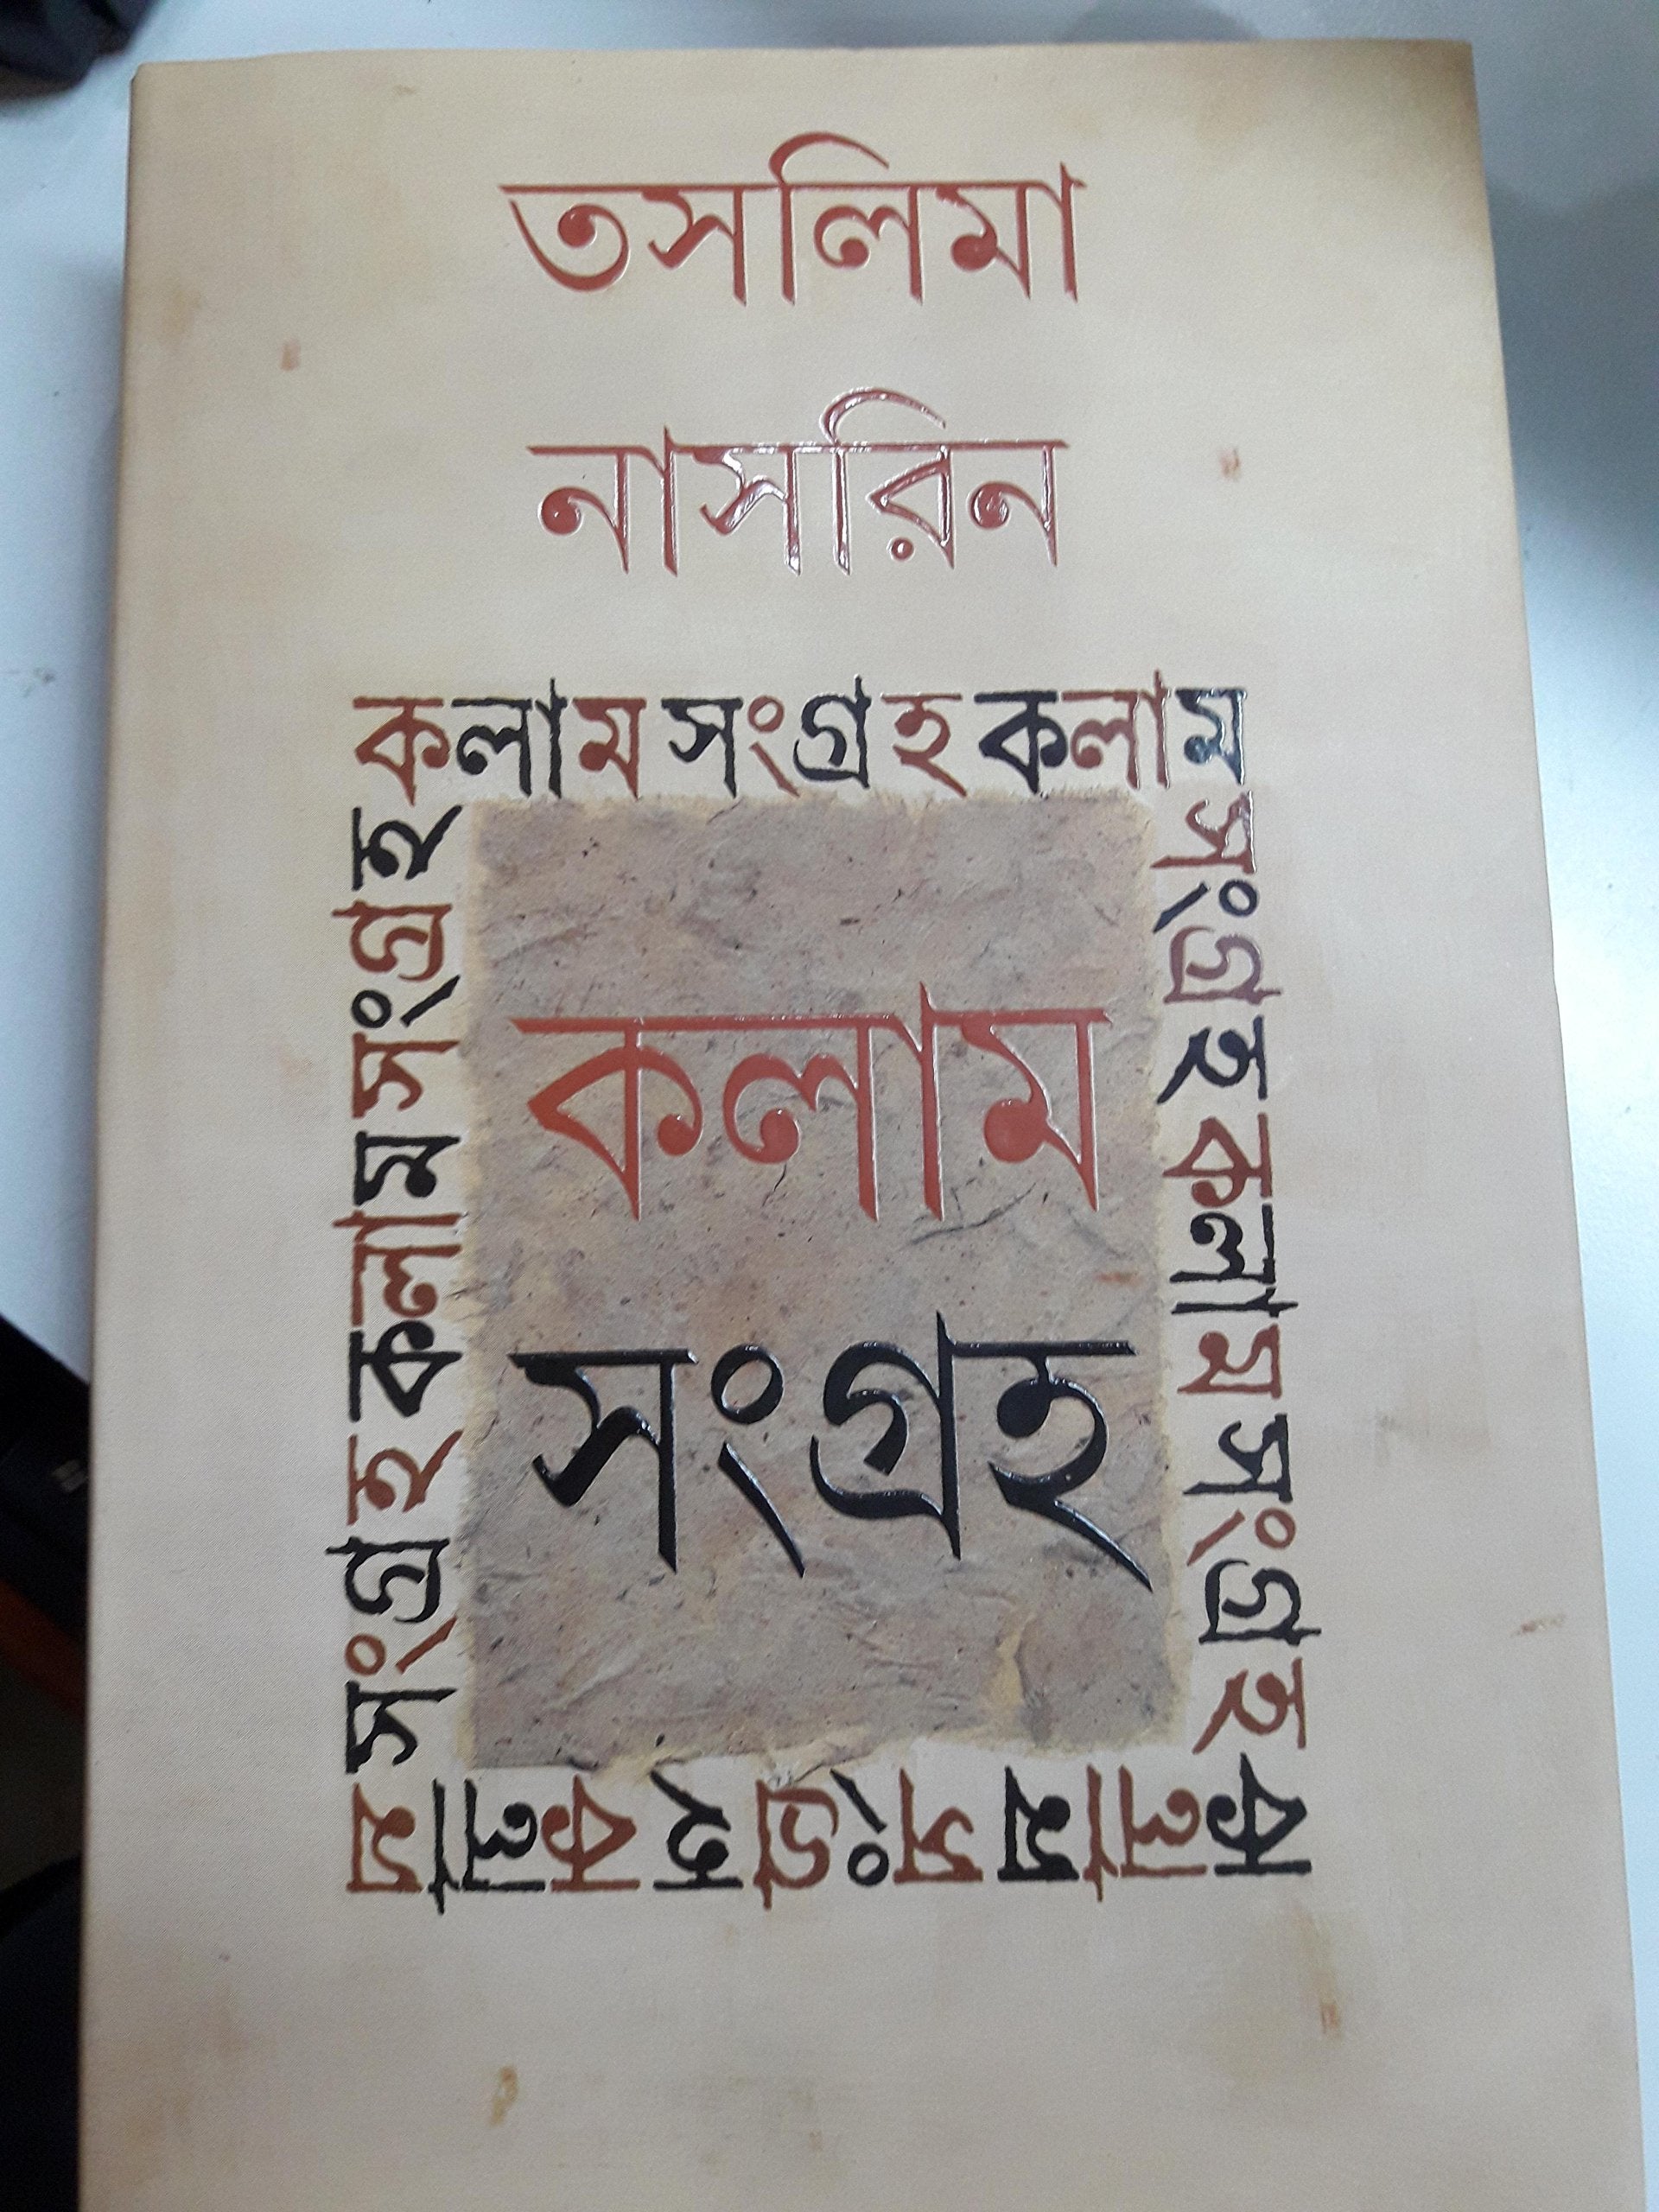 তসলিমা
নাসরিন
কলাম সংগ্রহ কলাম
সংগ্রহ কলাম সংগ্রহ
কলাম সংগ্রহ কলাম
সংগ্রহ কলাম সংগ্রহ
কলাম
সংগ্রহ